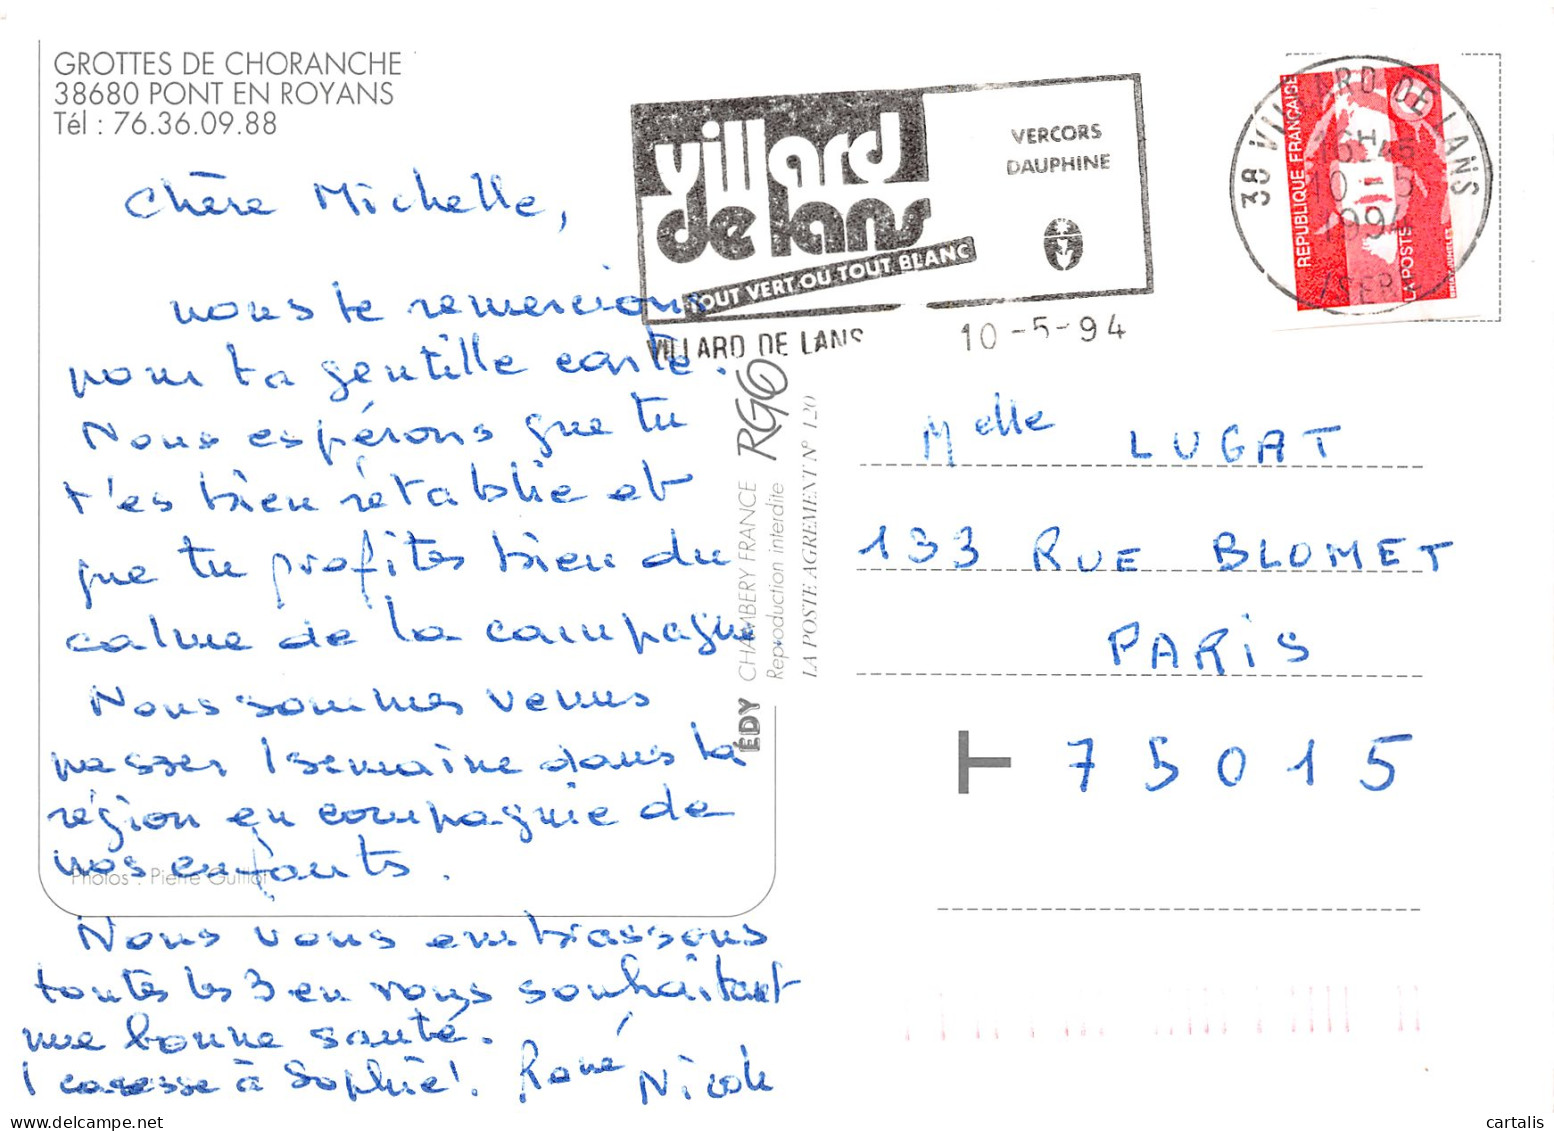 GROTTES DE CHORANCHE
38680 PONT EN ROYANS
Tél : 76.36.09.88
villard
de lans
TOUT VERT OU TOUT BLANC
VERCORS
DAUPHINE
VILLARD DE LANS 10-5-94
38 VILLARD DE LANS
16H45
10-5
1994
ISERE
REPUBLIQUE FRANÇAISE
LA POSTE
Chère Michelle,
nous te remercions
pour ta gentille carte.
Nous espérons que tu
t'es bien rétablie et
que tu profites bien du
calme de la campagne.
Nous sommes venus
passer 1 semaine dans la
région en compagnie de
nos enfants.
Photos : Pierre Guillot
Nous vous embrassons
toutes les 3 en vous souhaitant
une bonne santé.
1 caresse à Sophie! René Nicole
ÉDY CHAMBERY FRANCE
Reproduction interdite
LA POSTE AGREMENT N° 120
Melle LUGAT
133 RUE BLOMET
PARIS
T 75015
cartalis